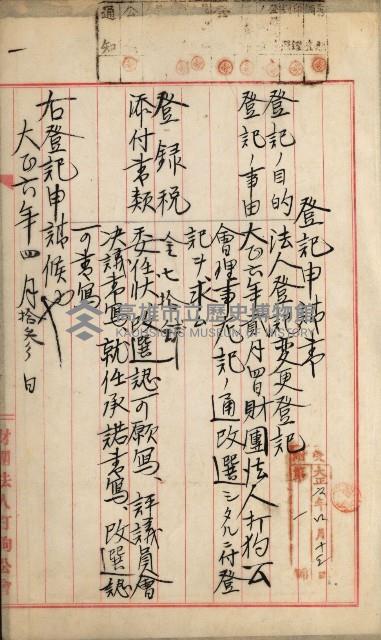 登記申請書
登記ノ目的 法人登記変更登記
登記ノ事由 大正六年四月四日財團法人打狗公
會理事 記ノ通改選シタルニ付登
記ヲ求ム
登録税 金七拾錢
添付書類 委任状、改選認可願寫、評議員會
決議書寫、就任承諾書寫、改選認
可書寫
右登記申請候也
大正六年四月拾参日
高雄市立歷史博物館
KAOHSIUNG MUSEUM OF HISTORY
大正六年四月十三日
第 一 號
財團法人打狗公會
通知
公
一